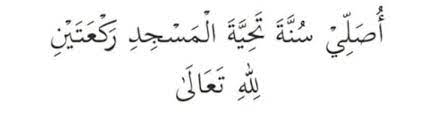 أُصَلِّيْ سُنَّةَ تَحِيَّةَ الْمَسْجِدِ رَكْعَتَيْنِ
لِلّٰهِ تَعَالَىٰ